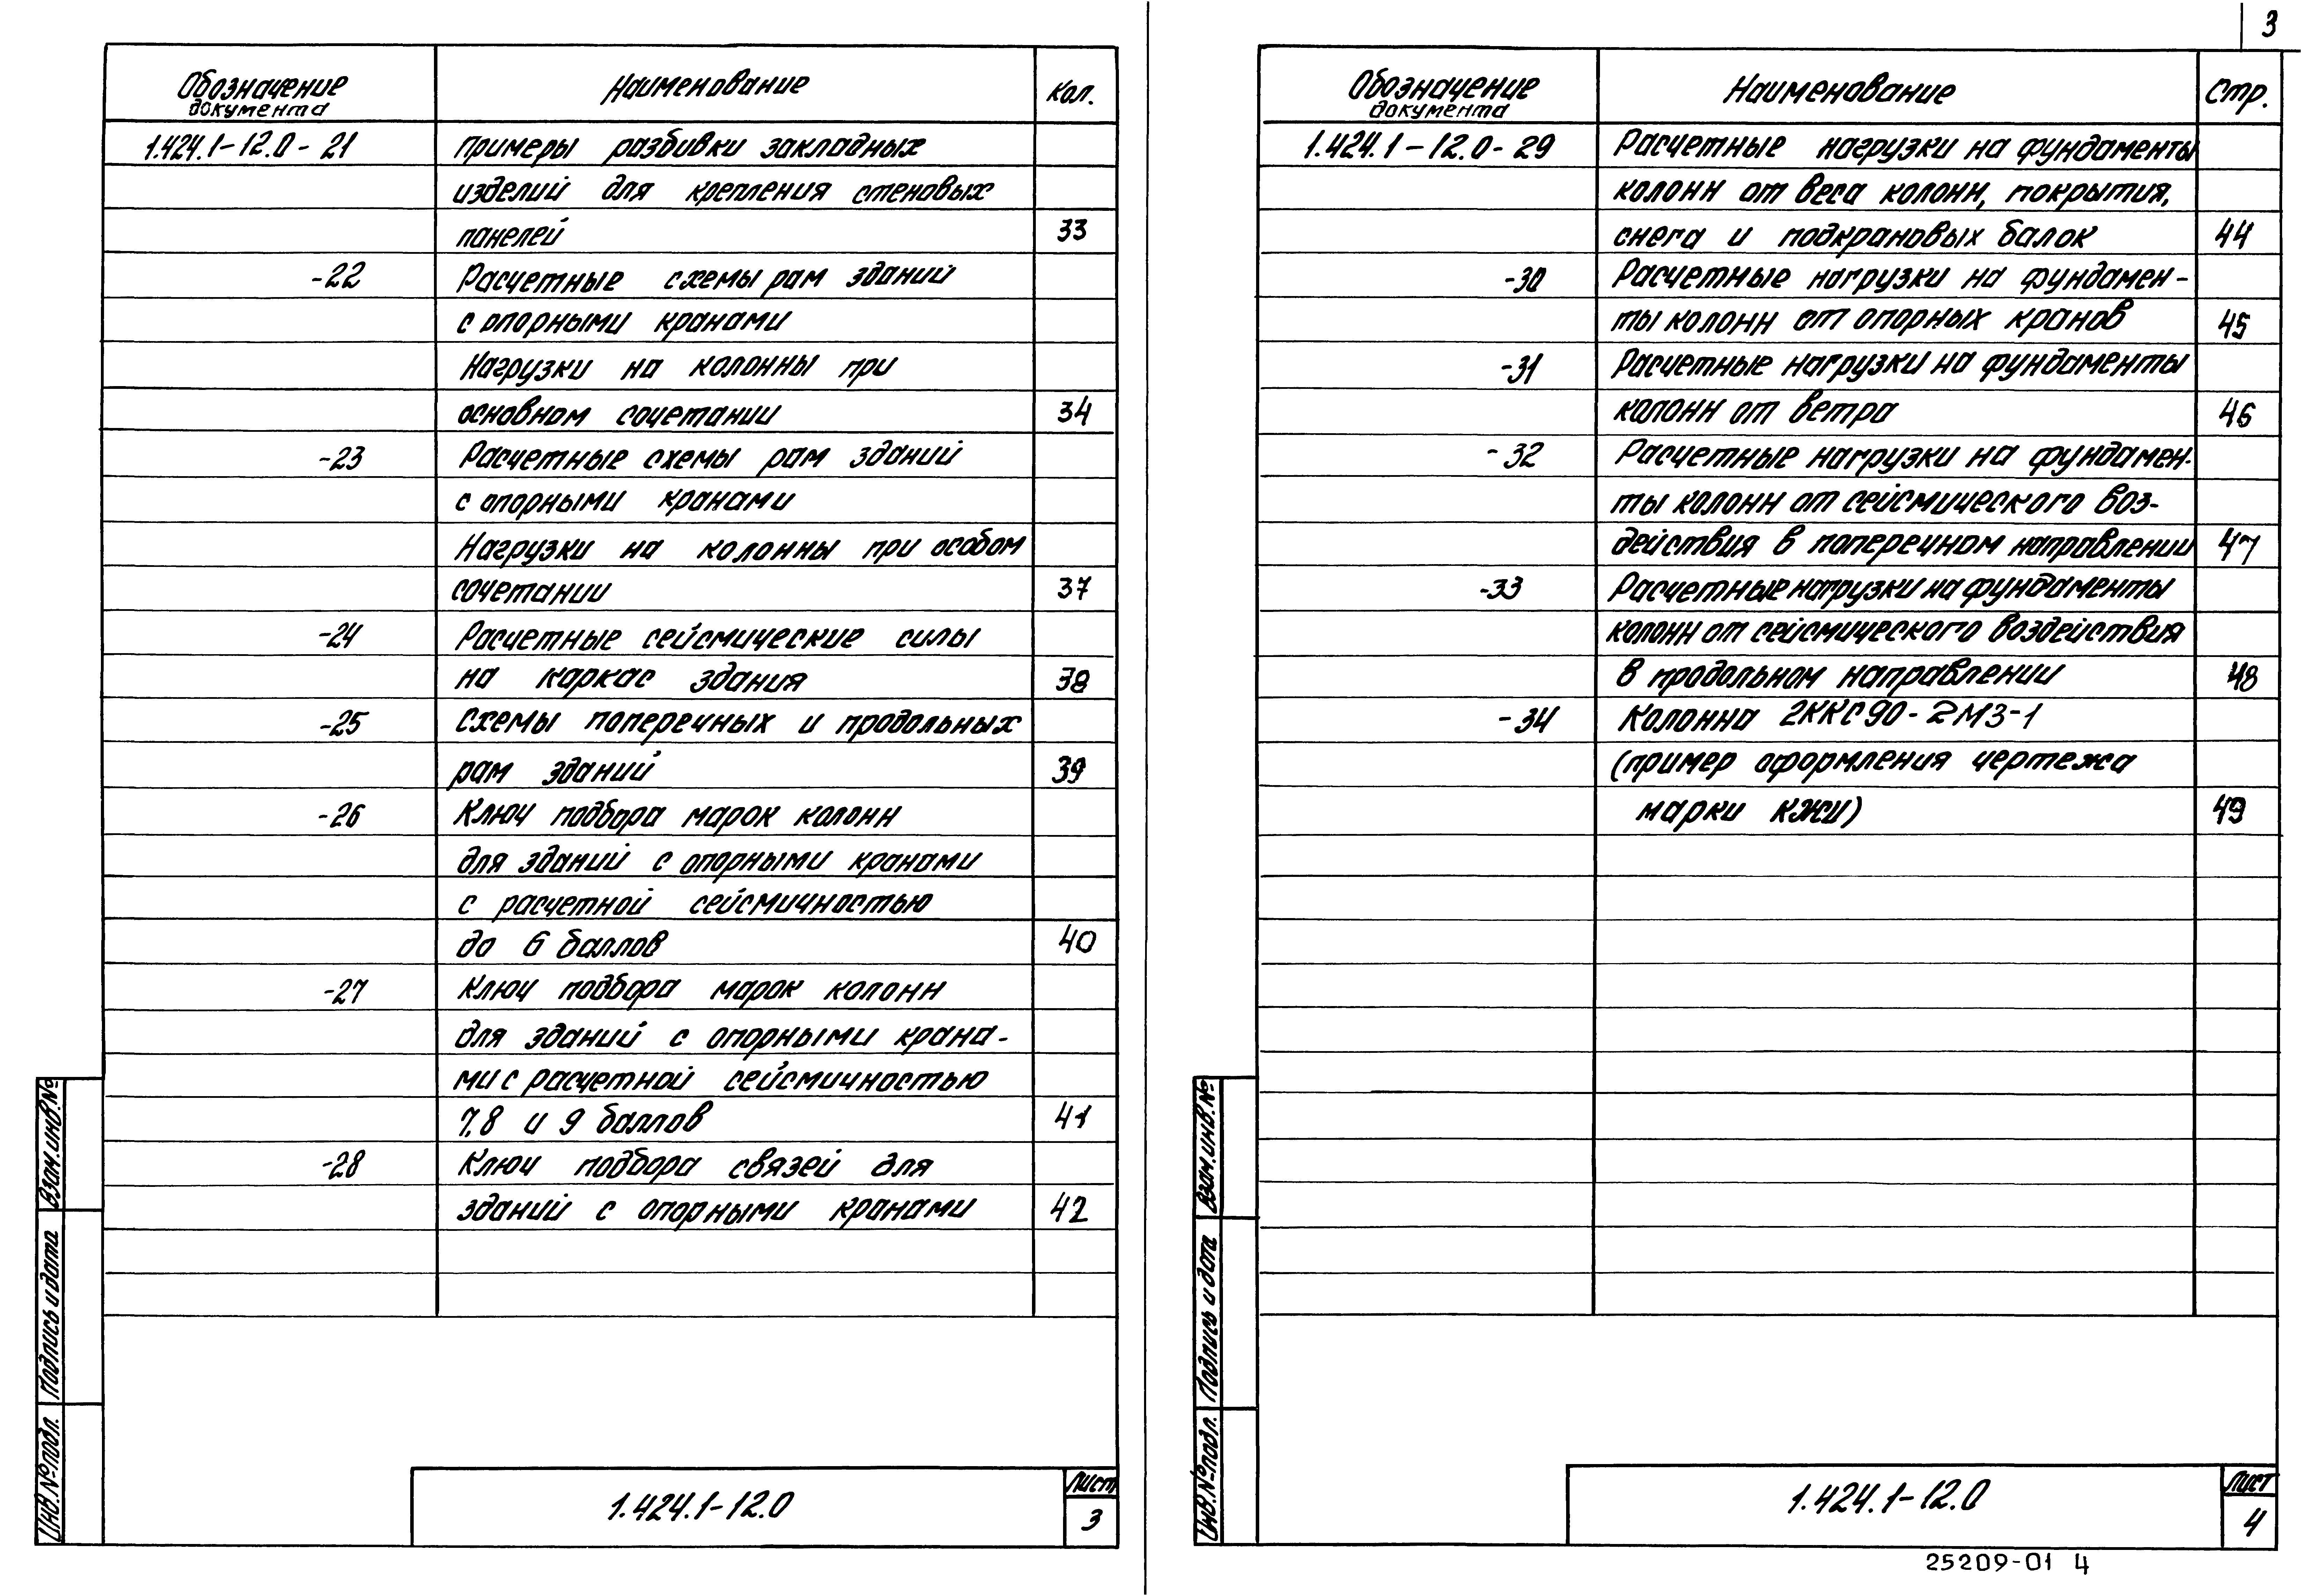 3
Обозначение документа Наименование Кол.
1.424.1-12.0-21 Примеры разбивки закладных
изделий для крепления стеновых
панелей 33
-22 Расчетные схемы рам зданий
с опорными кранами
Нагрузки на колонны при
основном сочетании 34
-23 Расчетные схемы рам зданий
с опорными кранами
Нагрузки на колонны при особом
сочетании 37
-24 Расчетные сейсмические силы
на каркас здания 38
-25 Схемы поперечных и продольных
рам зданий 39
-26 Ключ подбора марок колонн
для зданий с опорными кранами
с расчетной сейсмичностью
до 6 баллов 40
-27 Ключ подбора марок колонн
для зданий с опорными крана-
ми с расчетной сейсмичностью
7,8 и 9 баллов 41
-28 Ключ подбора связей для
зданий с опорными кранами 42
Взам.инв.№
Подпись и дата
Инв.№подл.
1.424.1-12.0
Лист
3
Обозначение документа Наименование Стр.
1.424.1-12.0-29 Расчетные нагрузки на фундаменты
колонн от веса колонн, покрытия,
снега и подкрановых балок 44
-30 Расчетные нагрузки на фундамен-
ты колонн от опорных кранов 45
-31 Расчетные нагрузки на фундаменты
колонн от ветра 46
-32 Расчетные нагрузки на фундамен-
ты колонн от сейсмического воз-
действия в поперечном направлении 47
-33 Расчетные нагрузки на фундаменты
колонн от сейсмического воздействия
в продольном направлении 48
-34 Колонна 2ККС90-2М3-1
(пример оформления чертежа
марки КЖИ) 49
Взам.инв.№
Подпись и дата
Инв.№подл.
1.424.1-12.0
Лист
4
25209-01 4